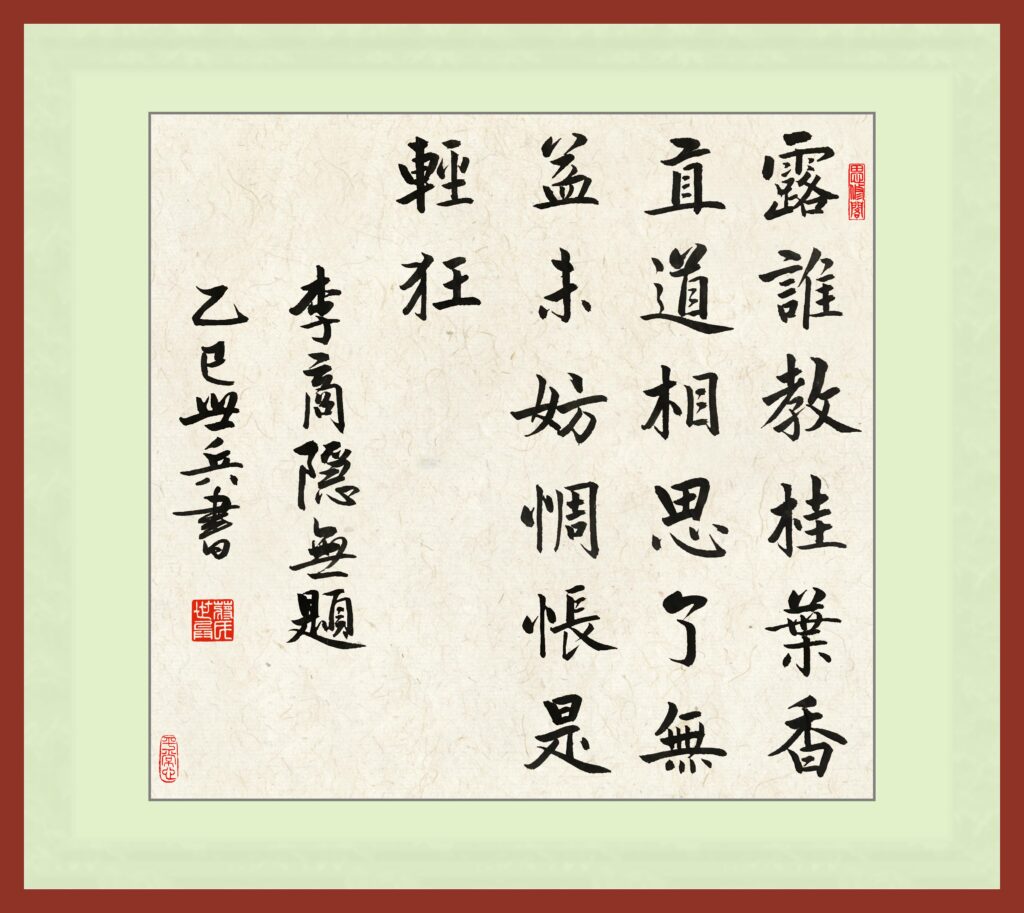 露誰教桂葉香
直道相思了無
益未妨惆悵是
輕狂
李商隱無題
乙巳世兵書
平常心